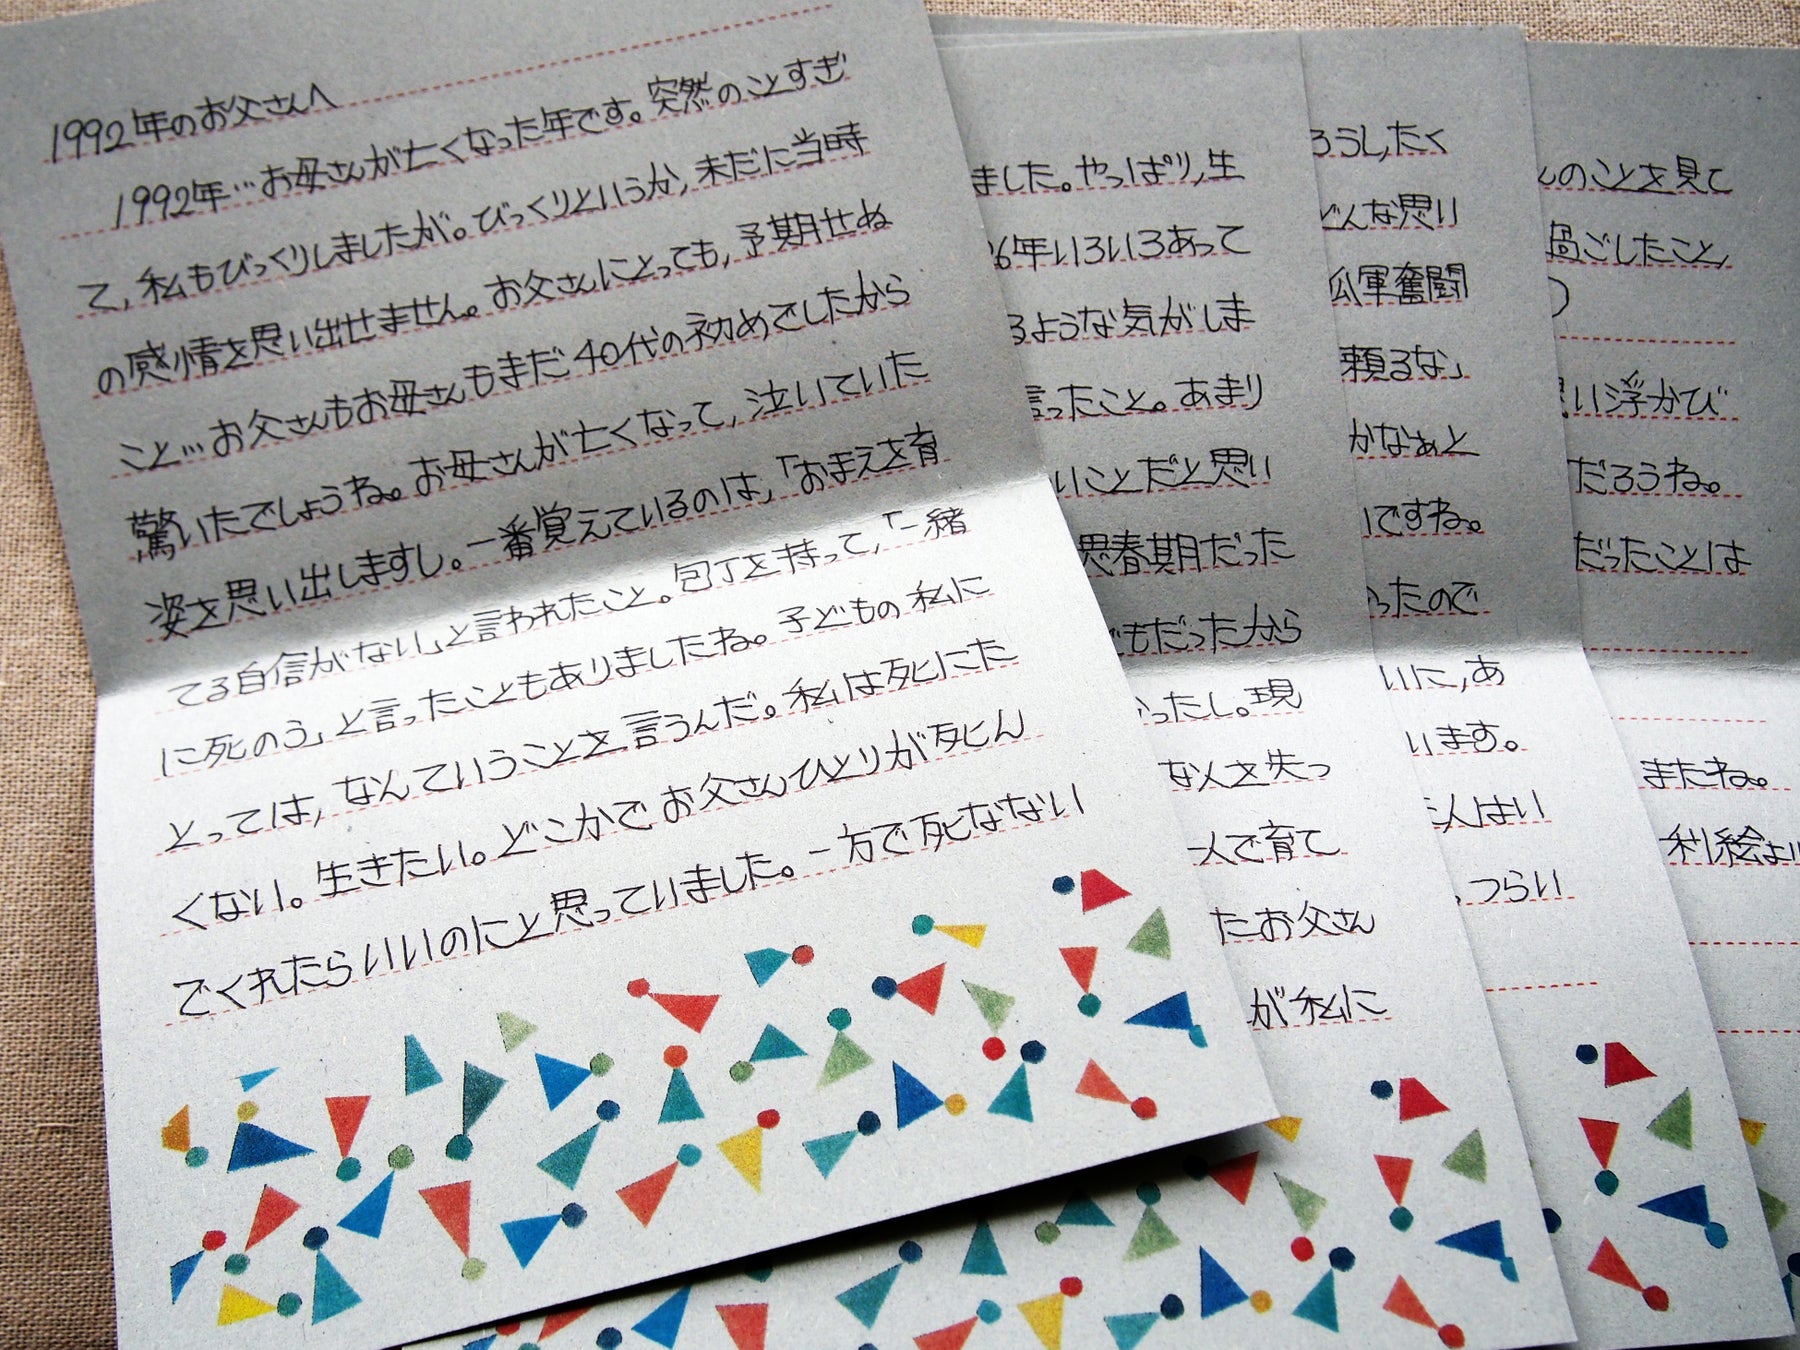 1992年のお父さんへ
1992年…お母さんが亡くなった年です。突然のことすぎ
て,私もびっくりしましたが。びっくりというか,未だに当時
の感情を思い出せません。お父さんにとっても,予期せぬ
こと…お父さんもお母さんもまだ40代の初めでしたから
驚いたでしょうね。お母さんが亡くなって,泣いていた
姿を思い出しますし。一番覚えているのは,「おまえを育
てる自信がない」と言われたこと。包丁を持って,「一緒
に死のう」と言ったこともありましたね。子どもの私に
とっては,なんていうことを言うんだ。私は死にた
くない。生きたい。どこかでお父さんひとりが死ん
でくれたらいいのにと思っていました。一方で死なない
ました。やっぱり,生
26年いろいろあって
るような気がしま
言ったこと。あまり
いことだと思い
思春期だった
どもだったから
かったし。現
な人を失っ
一人で育て
たお父さん
が私に
ろうし,たく
どんな思い
軍奮闘
頼るな」
かなぁと
いですね。
かったので
いに,あ
います。
人はい
つらい
んのことを見て
過ごしたこと,
思い浮かび
だろうね。
だったことは
またね。
利絵より